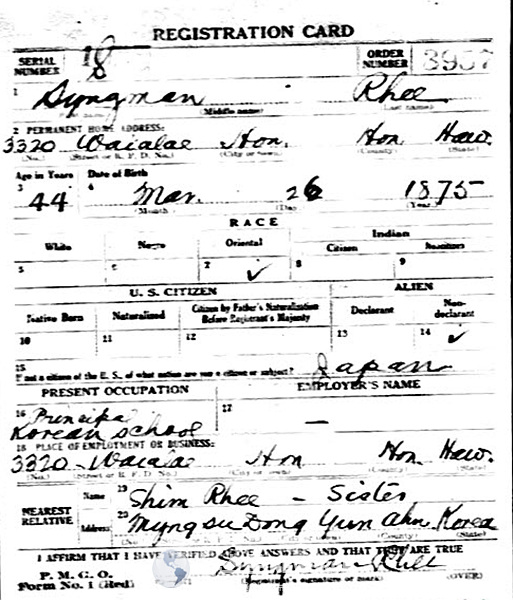 REGISTRATION CARD
SERIAL NUMBER 18 ORDER NUMBER 3957
1 Syngman Rhee
(Middle name)
2 PERMANENT HOME ADDRESS:
3320 Waialae Hon. Hon. Haw.
(No.) (Street or R. F. D. No.) (City or town) (County) (State)
Age in Years Date of Birth
3 44 4 Mar. 26 1875
(Month) (Day) (Year)
RACE
White Negro Oriental Indian
Citizen Noncitizen
5 6 7 ✓ 8 9
U. S. CITIZEN ALIEN
Native Born Naturalized Citizen by Father's Naturalization Before Registrant's Majority Declarant Non-declarant
10 11 12 13 14 ✓
15
If not a citizen of the U. S. of what nation are you a citizen or subject? Japan
PRESENT OCCUPATION EMPLOYER'S NAME
16 Principal 17 —
Korean School
18 PLACE OF EMPLOYMENT OR BUSINESS:
3320 - Waialae Hon Hon. Haw.
(No.) (City or town) (County) (State)
NEAREST RELATIVE
Name 19 Shim Rhee - Sister
Address 20 Myng su Dong Yun Ahn, Korea
I AFFIRM THAT I HAVE VERIFIED ABOVE ANSWERS AND THAT THEY ARE TRUE
P. M. G. O.
Form No. 1 (Red) Syngman Rhee
(Registrant's signature or mark) (OVER)